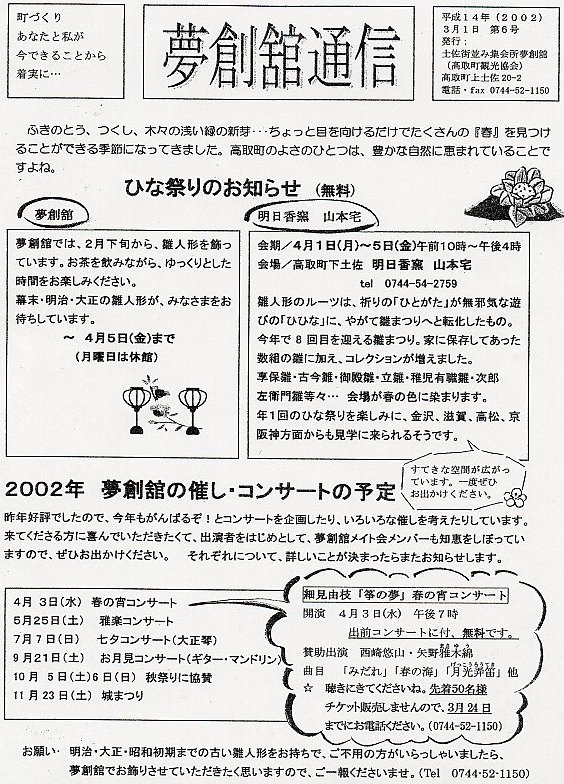 町づくり
あなたと私が
今できることから
着実に…
夢創舘通信
平成14年(2002)
3月1日 第6号
発行:
土佐街並み集会所夢創舘
(高取町観光協会)
高取町上土佐20-2
電話・fax 0744-52-1150
ふきのとう、つくし、木々の浅い緑の新芽・・・ちょっと目を向けるだけでたくさんの『春』を見つけ
ることができる季節になってきました。高取町のよさのひとつは、豊かな自然に恵まれていることで
すよね。
ひな祭りのお知らせ (無料)
夢創舘
夢創舘では、2月下旬から、雛人形を飾っ
ています。お茶を飲みながら、ゆっくりとした
時間をお楽しみください。
幕末・明治・大正の雛人形が、みなさまをお
待ちしています。
~ 4月5日(金)まで
(月曜日は休館)
明日香窯 山本宅
会期/4月1日(月)~5日(金)午前10時~午後4時
会場/高取町下土佐 明日香窯 山本宅
tel 0744-54-2759
雛人形のルーツは、祈りの「ひとがた」が無邪気な遊
びの「ひひな」に、やがて雛まつりへと転化したもの。
今年で8回目を迎える雛まつり。家に保存してあった
数組の雛に加え、コレクションが増えました。
享保雛・古今雛・御殿雛・立雛・稚児有職雛・次郎
左衛門雛等々… 会場が春の色に染まります。
年1回のひな祭りを楽しみに、金沢、滋賀、高松、京
阪神方面からも見学に来られるそうです。
すてきな空間が広がっ
ています。一度ぜひ
お出かけください。
2002年 夢創舘の催し・コンサートの予定
昨年好評でしたので、今年もがんばるぞ!とコンサートを企画したり、いろいろな催しを考えたりしています。
来てくださる方に喜んでいただきたくて、出演者をはじめとして、夢創舘メイト会メンバーも知恵をしぼってい
ますので、ぜひお出かけください。 それぞれについて、詳しいことが決まったらまたお知らせします。
4月 3日(水) 春の宵コンサート
5月25日(土) 雅楽コンサート
7月 7日(日) 七夕コンサート(大正琴)
9月21日(土) お月見コンサート(ギター・マンドリン)
10月 5日(土)6日(日) 秋祭りに協賛
11月23日(土) 城まつり
細見由枝「筝の夢」春の宵コンサート
開演 4月3日(水) 午後7時
出前コンサートに付、無料です。
賛助出演 西崎悠山・矢野雅木綿
曲目 「みだれ」「春の海」「月光弄笛」他
☆ 聴きにきてくださいね。先着50名様
チケット販売しませんので、3月24日
までにお電話ください。(0744-52-1150)
お願い・ 明治・大正・昭和初期までの古い雛人形をお持ちで、ご不用の方がいらっしゃいましたら、
夢創舘でお飾りさせていただきたく思いますので、ご一報くださいませ。(Tel 0744-52-1150)